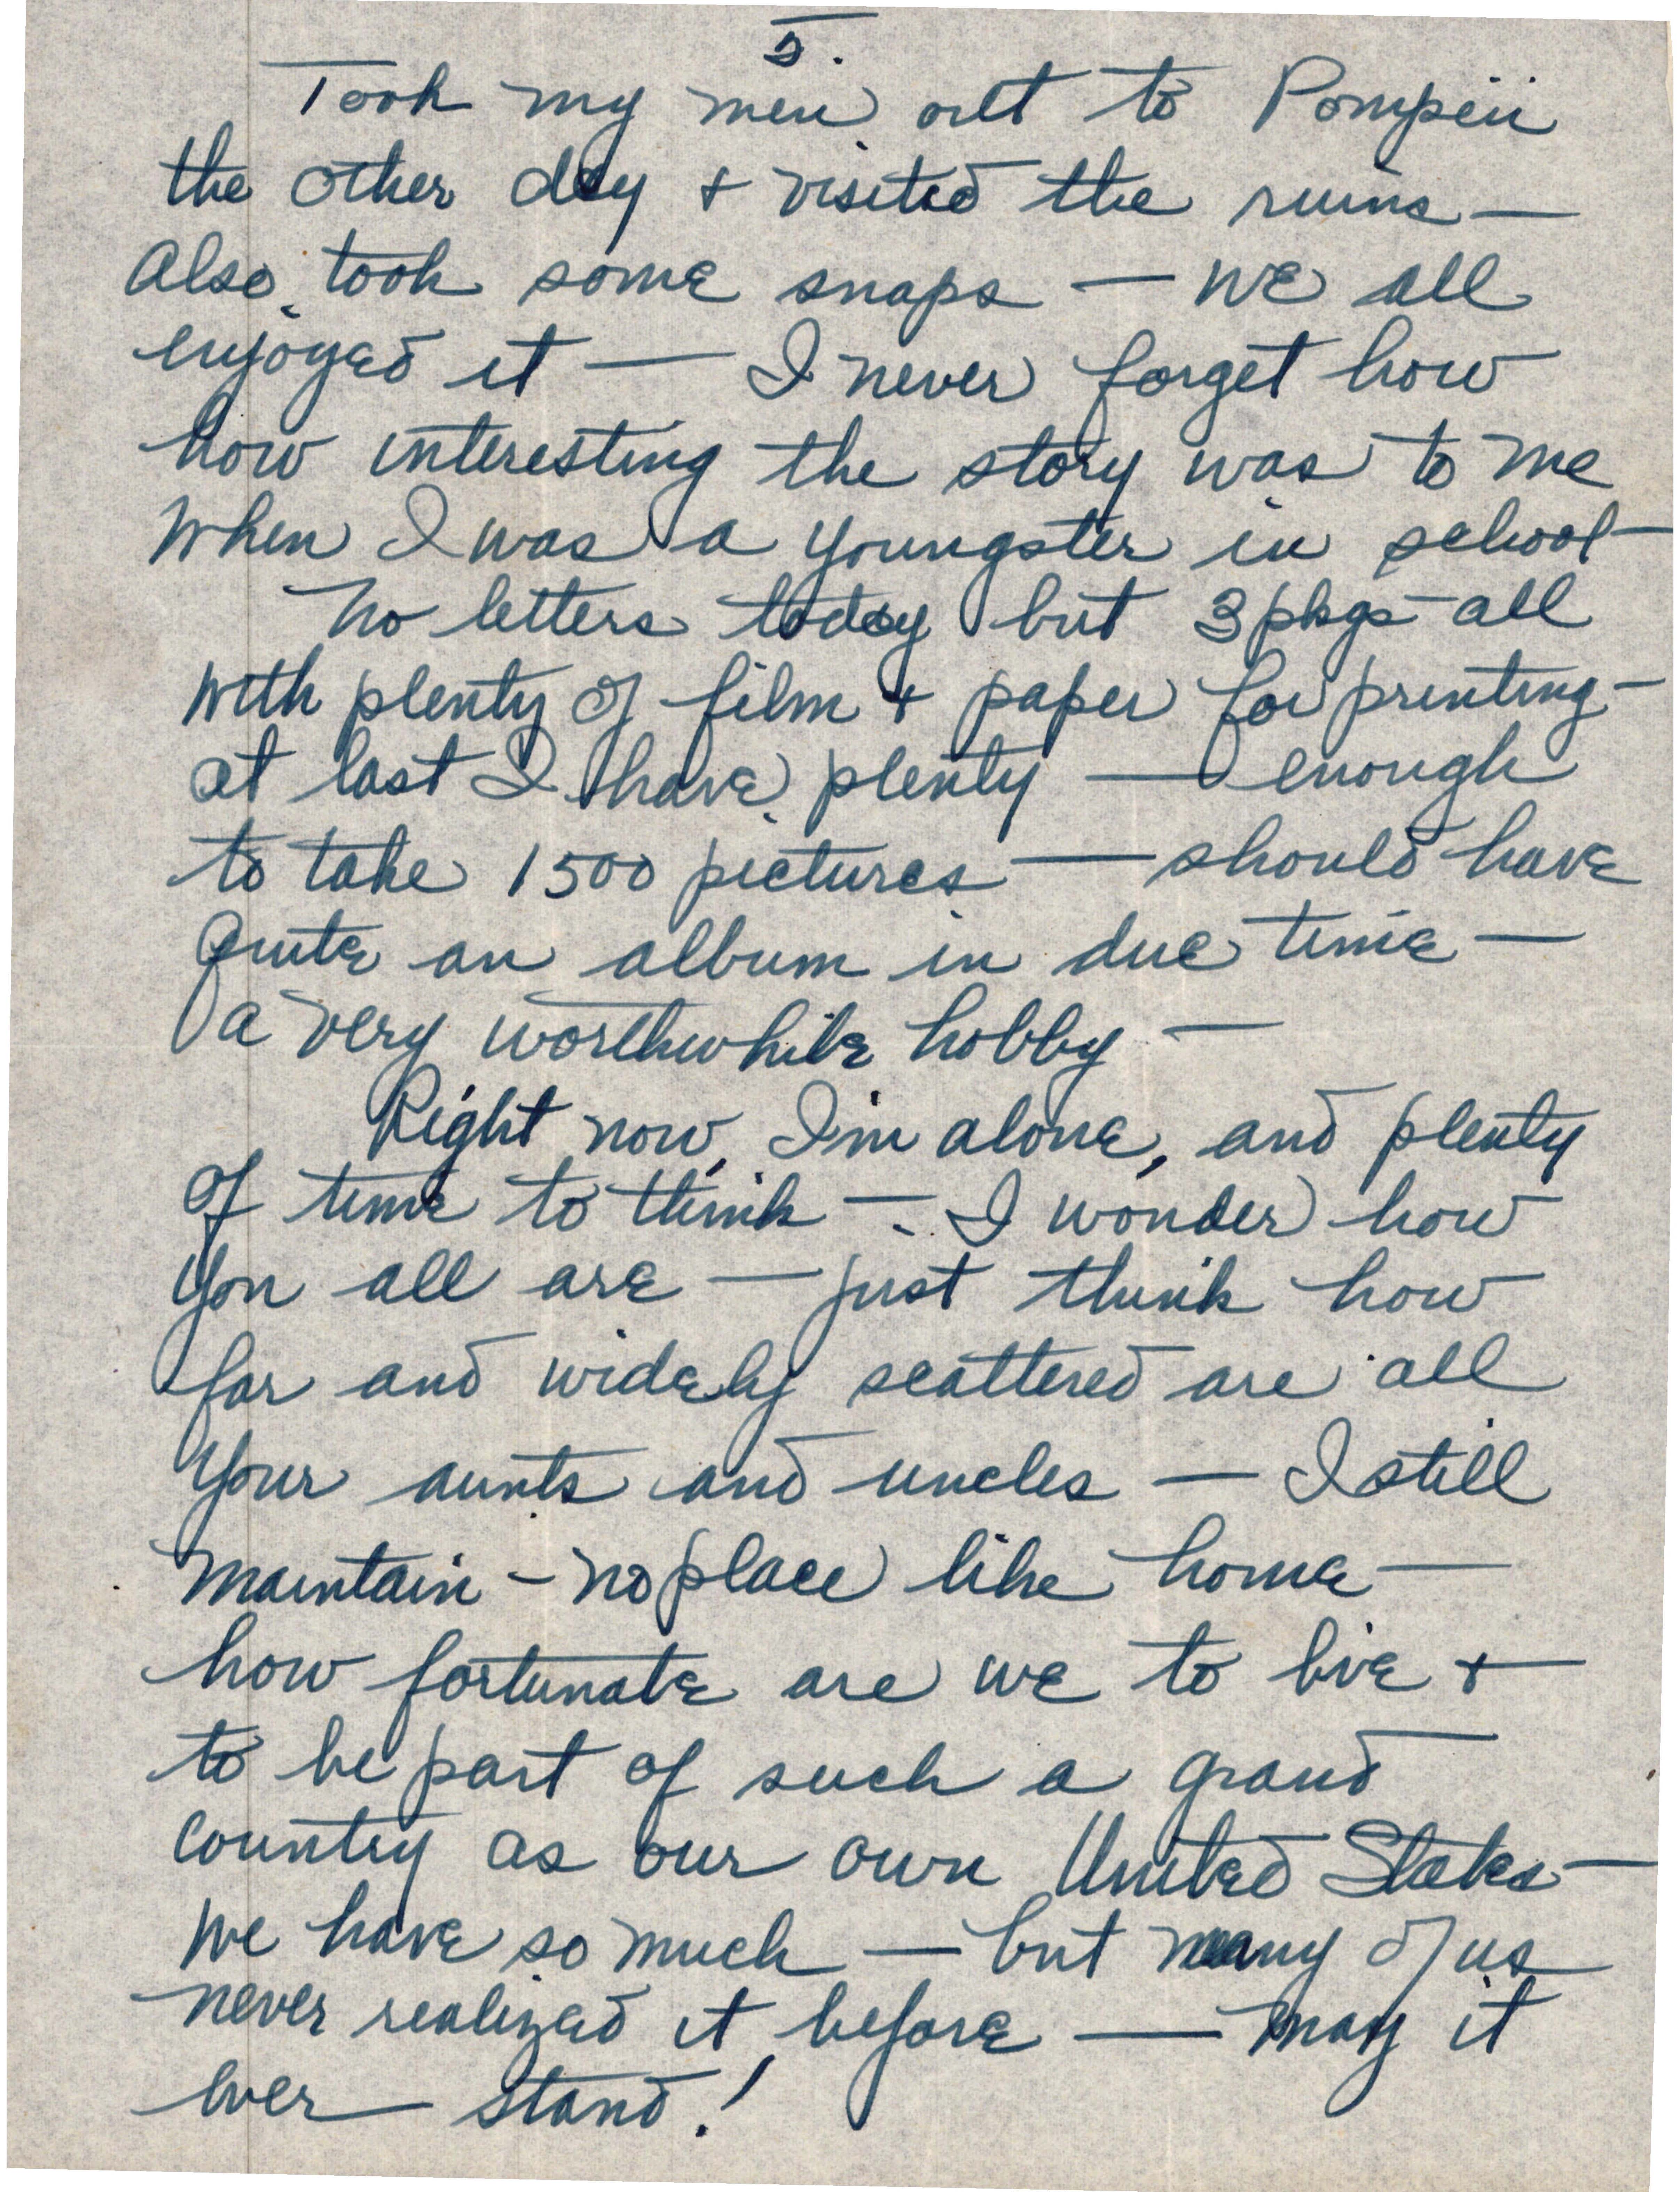 5.
Took my men out to Pompeii
the other day + visited the ruins —
Also took some snaps — we all
enjoyed it — I never forget how
how interesting the story was to me
when I was a youngster in school —
No letters today but 3 pkgs - all
with plenty of film + paper for printing —
at last I have plenty — enough
to take 1500 pictures — should have
quite an album in due time —
a very worthwhile hobby —
Right now, I'm alone, and plenty
of time to think — I wonder how
you all are — just think how
far and widely scattered are all
your aunts and uncles — I still
maintain - no place like home —
how fortunate are we to live +
to be part of such a grand
country as our own United States —
We have so much — but many of us
never realized it before — may it
ever stand!